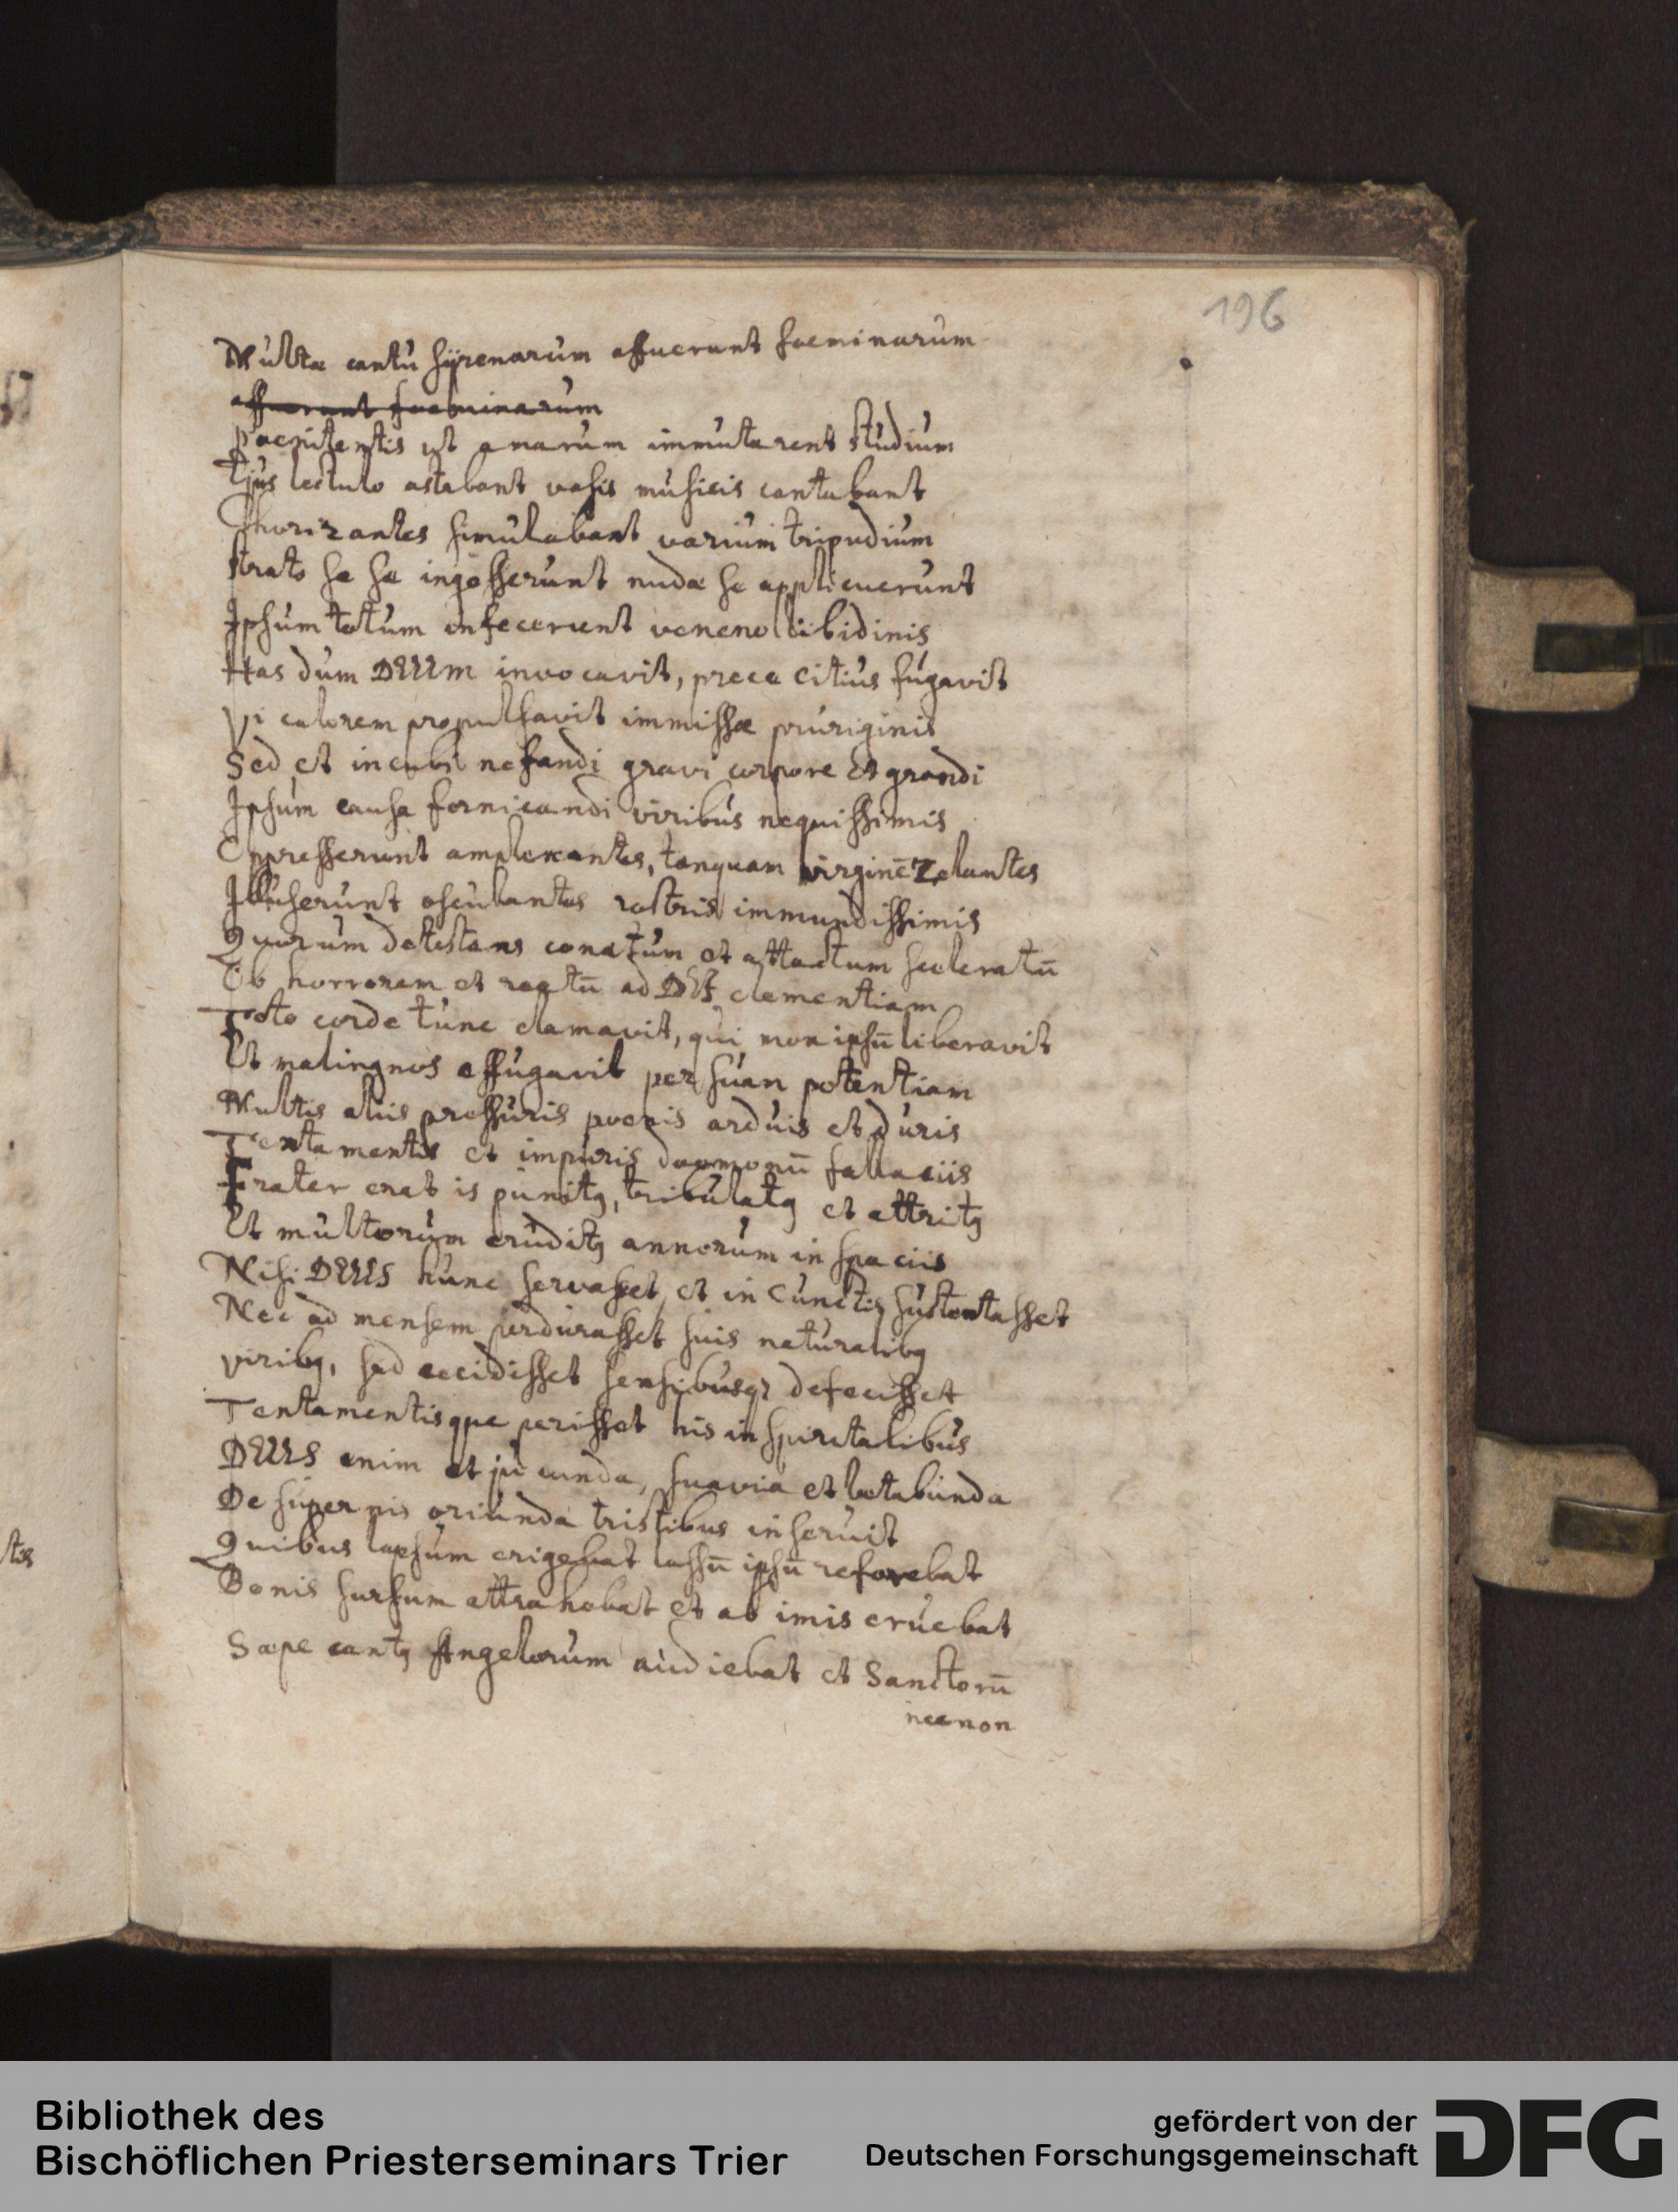 196
Multae cantu syrenarum affuerunt foeminarum
affuerunt foeminarum
Paenitentis ut amarum immutarent studium
Ejus lectulo astabant vasis musicis cantabant
Chorizantes simulabant varium tripudium
strato se se ingesserunt nudae se applicuerunt
Ipsum totum infecerunt veneno libidinis
Has dum DEUM invocavit, prece citius fugavit
Vi calorem propulsavit immissae pruriginis
Sed et incubi nefandi gravi corpore et grandi
Ipsum causa fornicandi viribus nequissimis
Oppresserunt amplexantes, tanquam virginē zelantes
Illuserunt osculantes rostris immundissimis
Quorum detestans conatum et attactum sceleratū
Ob horrorem et reatū ad DEI clementiam
Toto corde tunc clamavit, qui mox ipsū liberavit
Et malingnos effugavit per suam potentiam
Multis aliis pressuris poenis arduis et duris
Tentamentis et impuris daemonū fallaciis
Frater erat is punitꝯ, tribulatꝯ et attritꝯ
Et multorum eruditꝯ annorum in spaciis
Nisi DEUS hunc servasset, et in cunctis sustentasset
Nec ad mensem perdurasset suis naturalibꝯ
viribꝯ, sed cecidisset sensibusqꝫ defecisset
Tentamentisque perisset his in spiritalibus
DEUS enim et jucunda, suavia et laetabunda
De supernis oriunda tristibus inseruit
Quibus lapsum erigebat lassū ipsū refovebat
Bonis sursum attrahebat et ab imis eruebat
Saepe cantꝯ Angelorum audiebat et Sanctorū
necnon
stis
Bibliothek des
Bischöflichen Priesterseminars Trier
gefördert von der
Deutschen Forschungsgemeinschaft
DFG